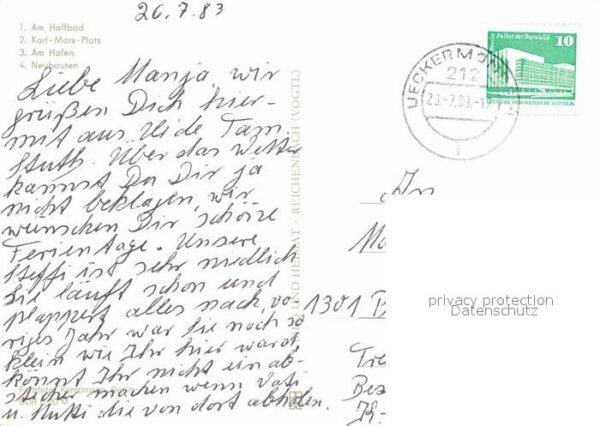 26.7.83
1. Am Haffbad
2. Karl-Marx-Platz
3. Am Hafen
4. Neubauten
Liebe Manja, wir
grüßen Dich hier-
mit aus
Über das Wetter
kannst Du Dir ja
nicht beklagen, wir
wünschen Dir schöne
Ferientage. Unsere
Steffi ist sehr niedlich
Sie läuft schon und
plappert alles nach, vo-
riges Jahr war sie noch so
klein wie Ihr hier ward,
könnt Ihr nicht ein ab-
stecher machen wenn Vati
u. Mutti die von dort abholen.
UND HEIMAT · REICHENBACH (VOGTL)
UECKERMÜN
212
-7.83.-1
DDR
Palast der Republik
10
DEUTSCHE DEMOKRATISCHE REPUBLIK
An
Ma
1301
privacy protection
Datenschutz